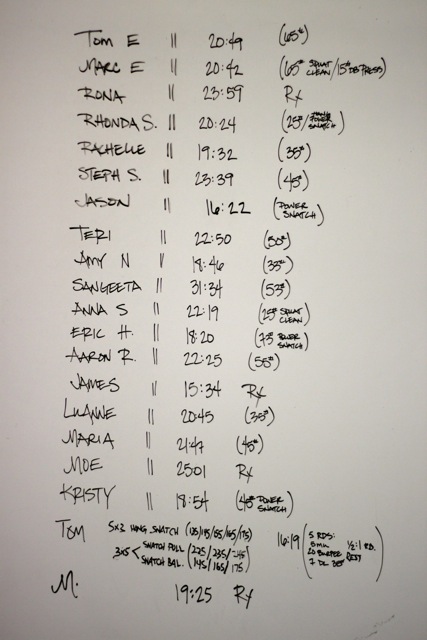 TOM E || 20:49 (65#)
MARC E || 20:42 (65# SPLAT CLEAN/15# DB PRESS)
RONA || 23:59 Rx
RHONDA S. || 20:24 (25#/ POWER SNATCH)
RACHELLE || 19:32 (35#)
STEPH S. || 23:39 (45#)
JASON || 16:22 (POWER SNATCH)
TERI || 22:50 (50#)
AMY N || 18:46 (35#)
SANGEETA || 31:34 (53#)
ANNA S || 22:19 (25# SPLAT CLEAN)
ERIC H. || 18:20 (75# POWER SNATCH)
AARON R. || 22:25 (55#)
JAMES || 15:34 Rx
LUANNE || 20:45 (35#)
MARIA || 21:47 (45#)
MOE || 2501 Rx
KRISTY || 18:54 (45# POWER SNATCH)
TOM 5x3 HANG SNATCH 16:19 (5 RDS:
3x5 < SNATCH PULL (225/235/245) ½:1 RD.
SNATCH BAL. (145/165/175) 20 BURPEE REST
7 DL
M. 19:25 Rx